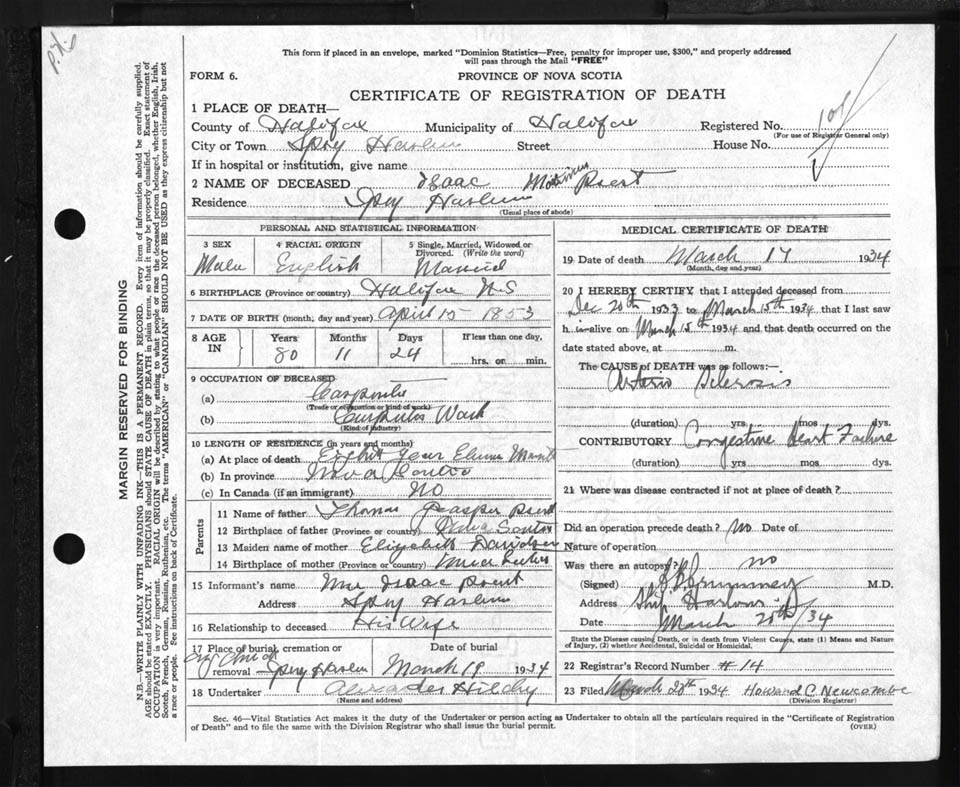 This form if placed in an envelope, marked "Dominion Statistics—Free, penalty for improper use, $300," and properly addressed
will pass through the Mail "FREE"
FORM 6.
PROVINCE OF NOVA SCOTIA
CERTIFICATE OF REGISTRATION OF DEATH
1 PLACE OF DEATH—
County of Halifax Municipality of Halifax Registered No.
(For use of Registrar General only)
City or Town Spry Street House No.
If in hospital or institution, give name
2 NAME OF DECEASED Isaac
Residence Spry
(Usual place of abode)
PERSONAL AND STATISTICAL INFORMATION
3 SEX 4 RACIAL ORIGIN 5 Single, Married, Widowed or
Divorced. (Write the word)
Male English Married
6 BIRTHPLACE (Province or country) Halifax N-S
7 DATE OF BIRTH (month; day and year) April 15 1853
8 AGE IN Years Months Days If less than one day,
80 11 24 hrs. or min.
9 OCCUPATION OF DECEASED
(a)
(Trade or occupation or kind of work)
(b) Work
(Kind of industry)
10 LENGTH OF RESIDENCE (in years and months)
(a) At place of death
(b) In province Nova
(c) In Canada (if an immigrant) NO
Parents
11 Name of father Thomas
12 Birthplace of father (Province or country) Nova
13 Maiden name of mother Davidson
14 Birthplace of mother (Province or country)
15 Informant's name Mrs Isaac
Address Spry
16 Relationship to deceased His Wife
17 Place of burial, cremation or Date of burial
removal Spry March 19 1934
18 Undertaker Alexander
(Name and address)
MEDICAL CERTIFICATE OF DEATH
19 Date of death March 17 1934
(Month, day and year)
20 I HEREBY CERTIFY that I attended deceased from
Dec 20th 1933 to March 15th 1934 that I last saw
h alive on March 15th 1934 and that death occurred on the
date stated above, at m.
The CAUSE of DEATH was as follows:—
Arterio Sclerosis
(duration) yrs. mos dys.
CONTRIBUTORY Congestive Heart Failure
(duration) yrs mos dys.
21 Where was disease contracted if not at place of death?
Did an operation precede death? no Date of
Nature of operation
Was there an autopsy? no
(Signed) M.D.
Address Ship Harbour
Date March /34
State the Disease causing Death, or in death from Violent Causes, state (1) Means and Nature
of Injury, (2) whether Accidental, Suicidal or Homicidal.
22 Registrar's Record Number #14
23 Filed March 20th 1934 Howard C. Newcombe
(Division Registrar)
Sec. 46—Vital Statistics Act makes it the duty of the Undertaker or person acting as Undertaker to obtain all the particulars required in the "Certificate of Registration
of Death" and to file the same with the Division Registrar who shall issue the burial permit.
(OVER)
MARGIN RESERVED FOR BINDING
N.B.—WRITE PLAINLY WITH UNFADING INK—THIS IS A PERMANENT RECORD. Every item of information should be carefully supplied.
AGE should be stated EXACTLY. PHYSICIANS should STATE CAUSE OF DEATH in plain terms, so that it may be properly classified. Exact statement of
OCCUPATION is very important. RACIAL ORIGIN will be described by stating to what people or race the deceased person belonged, whether English, Irish,
Scotch, French, German, Russian, Ruthenian, etc. The terms "AMERICAN" or "CANADIAN" SHOULD NOT BE USED as they express citizenship but not
a race or people. See instructions on back of Certificate.